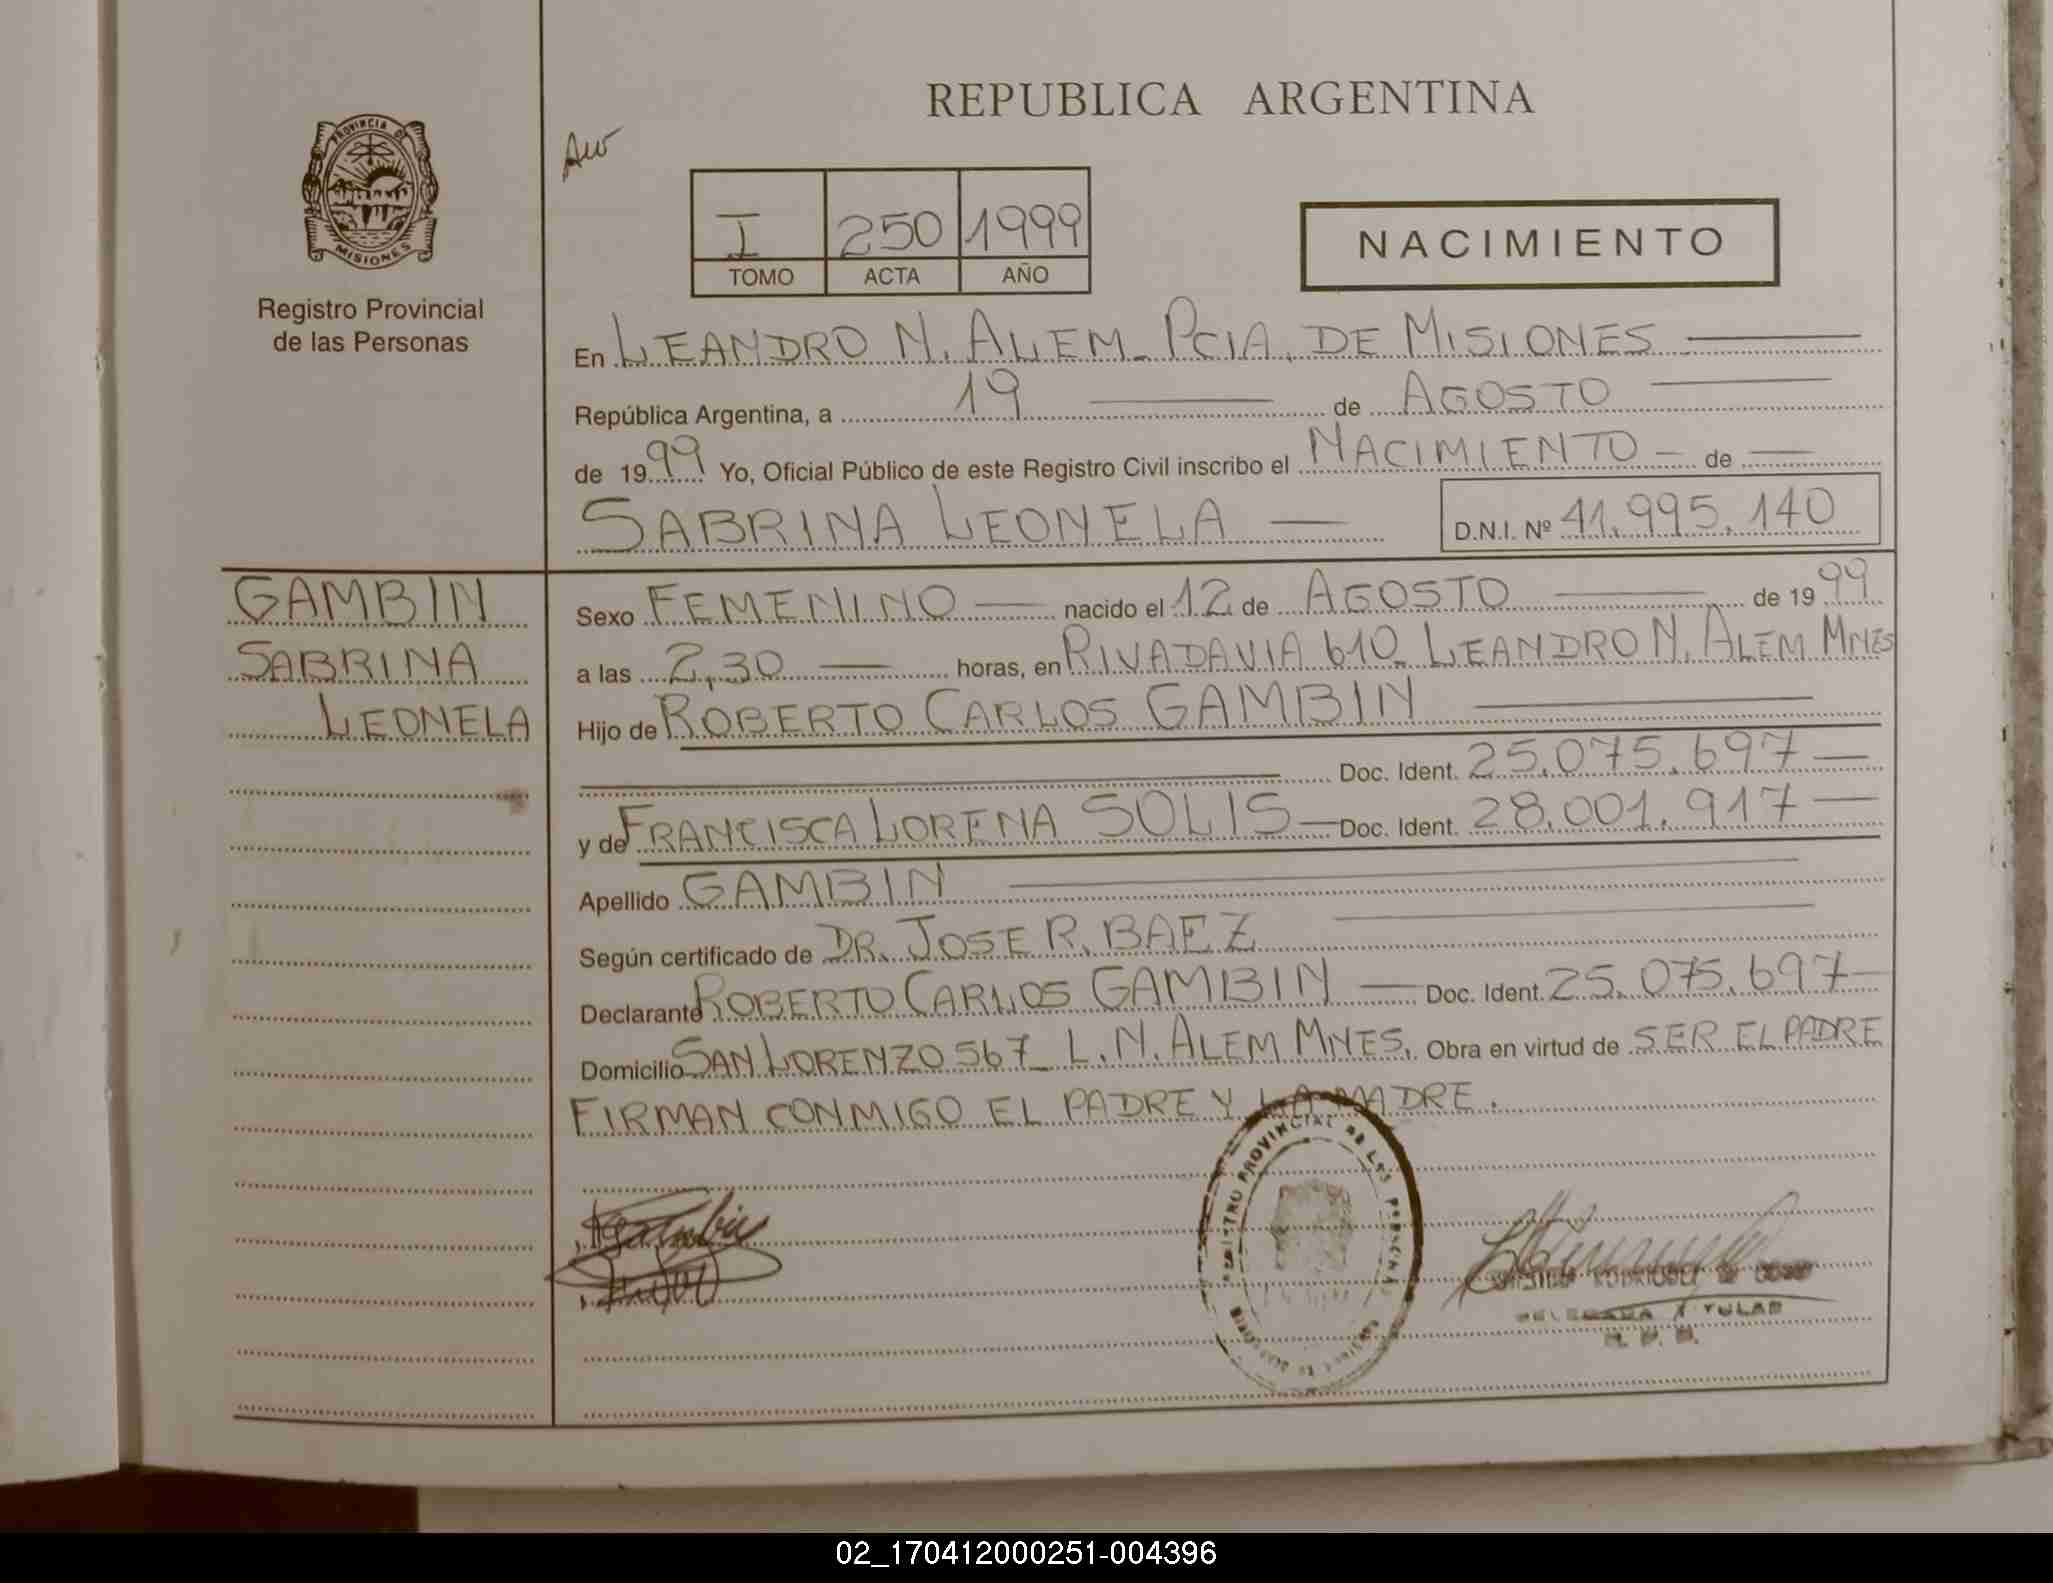 REPUBLICA ARGENTINA
PROVINCIA DE
MISIONES
Registro Provincial
de las Personas
I 250 1999
TOMO ACTA AÑO
NACIMIENTO
En LEANDRO N. ALEM - PCIA. DE MISIONES
República Argentina, a 19 de AGOSTO
de 1999 Yo, Oficial Público de este Registro Civil inscribo el NACIMIENTO de
SABRINA LEONELA D.N.I. Nº 41.995.140
GAMBIN
SABRINA
LEONELA
Sexo FEMENINO nacido el 12 de AGOSTO de 1999
a las 2,30 horas, en RIVADAVIA 610 LEANDRO N. ALEM MNES
Hijo de ROBERTO CARLOS GAMBIN
Doc. Ident. 25.075.697
y de FRANCISCA LORENA SOLIS Doc. Ident. 28.001.917
Apellido GAMBIN
Según certificado de DR. JOSE R. BAEZ
Declarante ROBERTO CARLOS GAMBIN Doc. Ident. 25.075.697
Domicilio SAN LORENZO 567 L.N. ALEM MNES. Obra en virtud de SER EL PADRE
FIRMAN CONMIGO EL PADRE Y LA MADRE.
REGISTRO PROVINCIAL DE LAS PERSONAS
RODRIGUEZ DE
DELEGADA TITULAR
R. P. P.
02_170412000251-004396